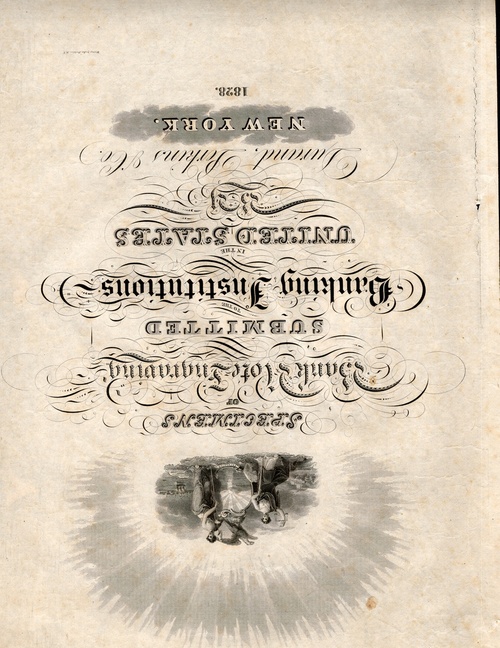 SPECIMENS
OF
Bank Note Engraving,
SUBMITTED
TO THE
Banking Institutions
IN THE
UNITED STATES
By
Durand, Perkins & Co.
NEW YORK.
1828.